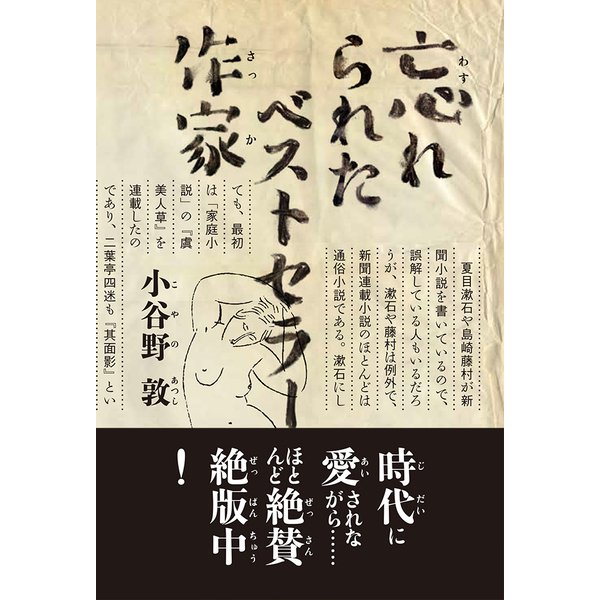 忘れ
られた
ベストセラー
作家
わす
さっか
夏目漱石や島崎藤村が新
聞小説を書いているので、
誤解している人もいるだろ
うが、漱石や藤村は例外で、
新聞連載小説のほとんどは
通俗小説である。漱石にし
ても、最初
は「家庭小
説」の『虞
美人草』を
連載したの
であり、二葉亭四迷も『其面影』とい
小谷野 敦
こやの あつし
時代に
愛されな
がら……
ほと
んど絶賛
絶版中
！
じだい
あい
ぜっさん
ぜっぱんちゅう